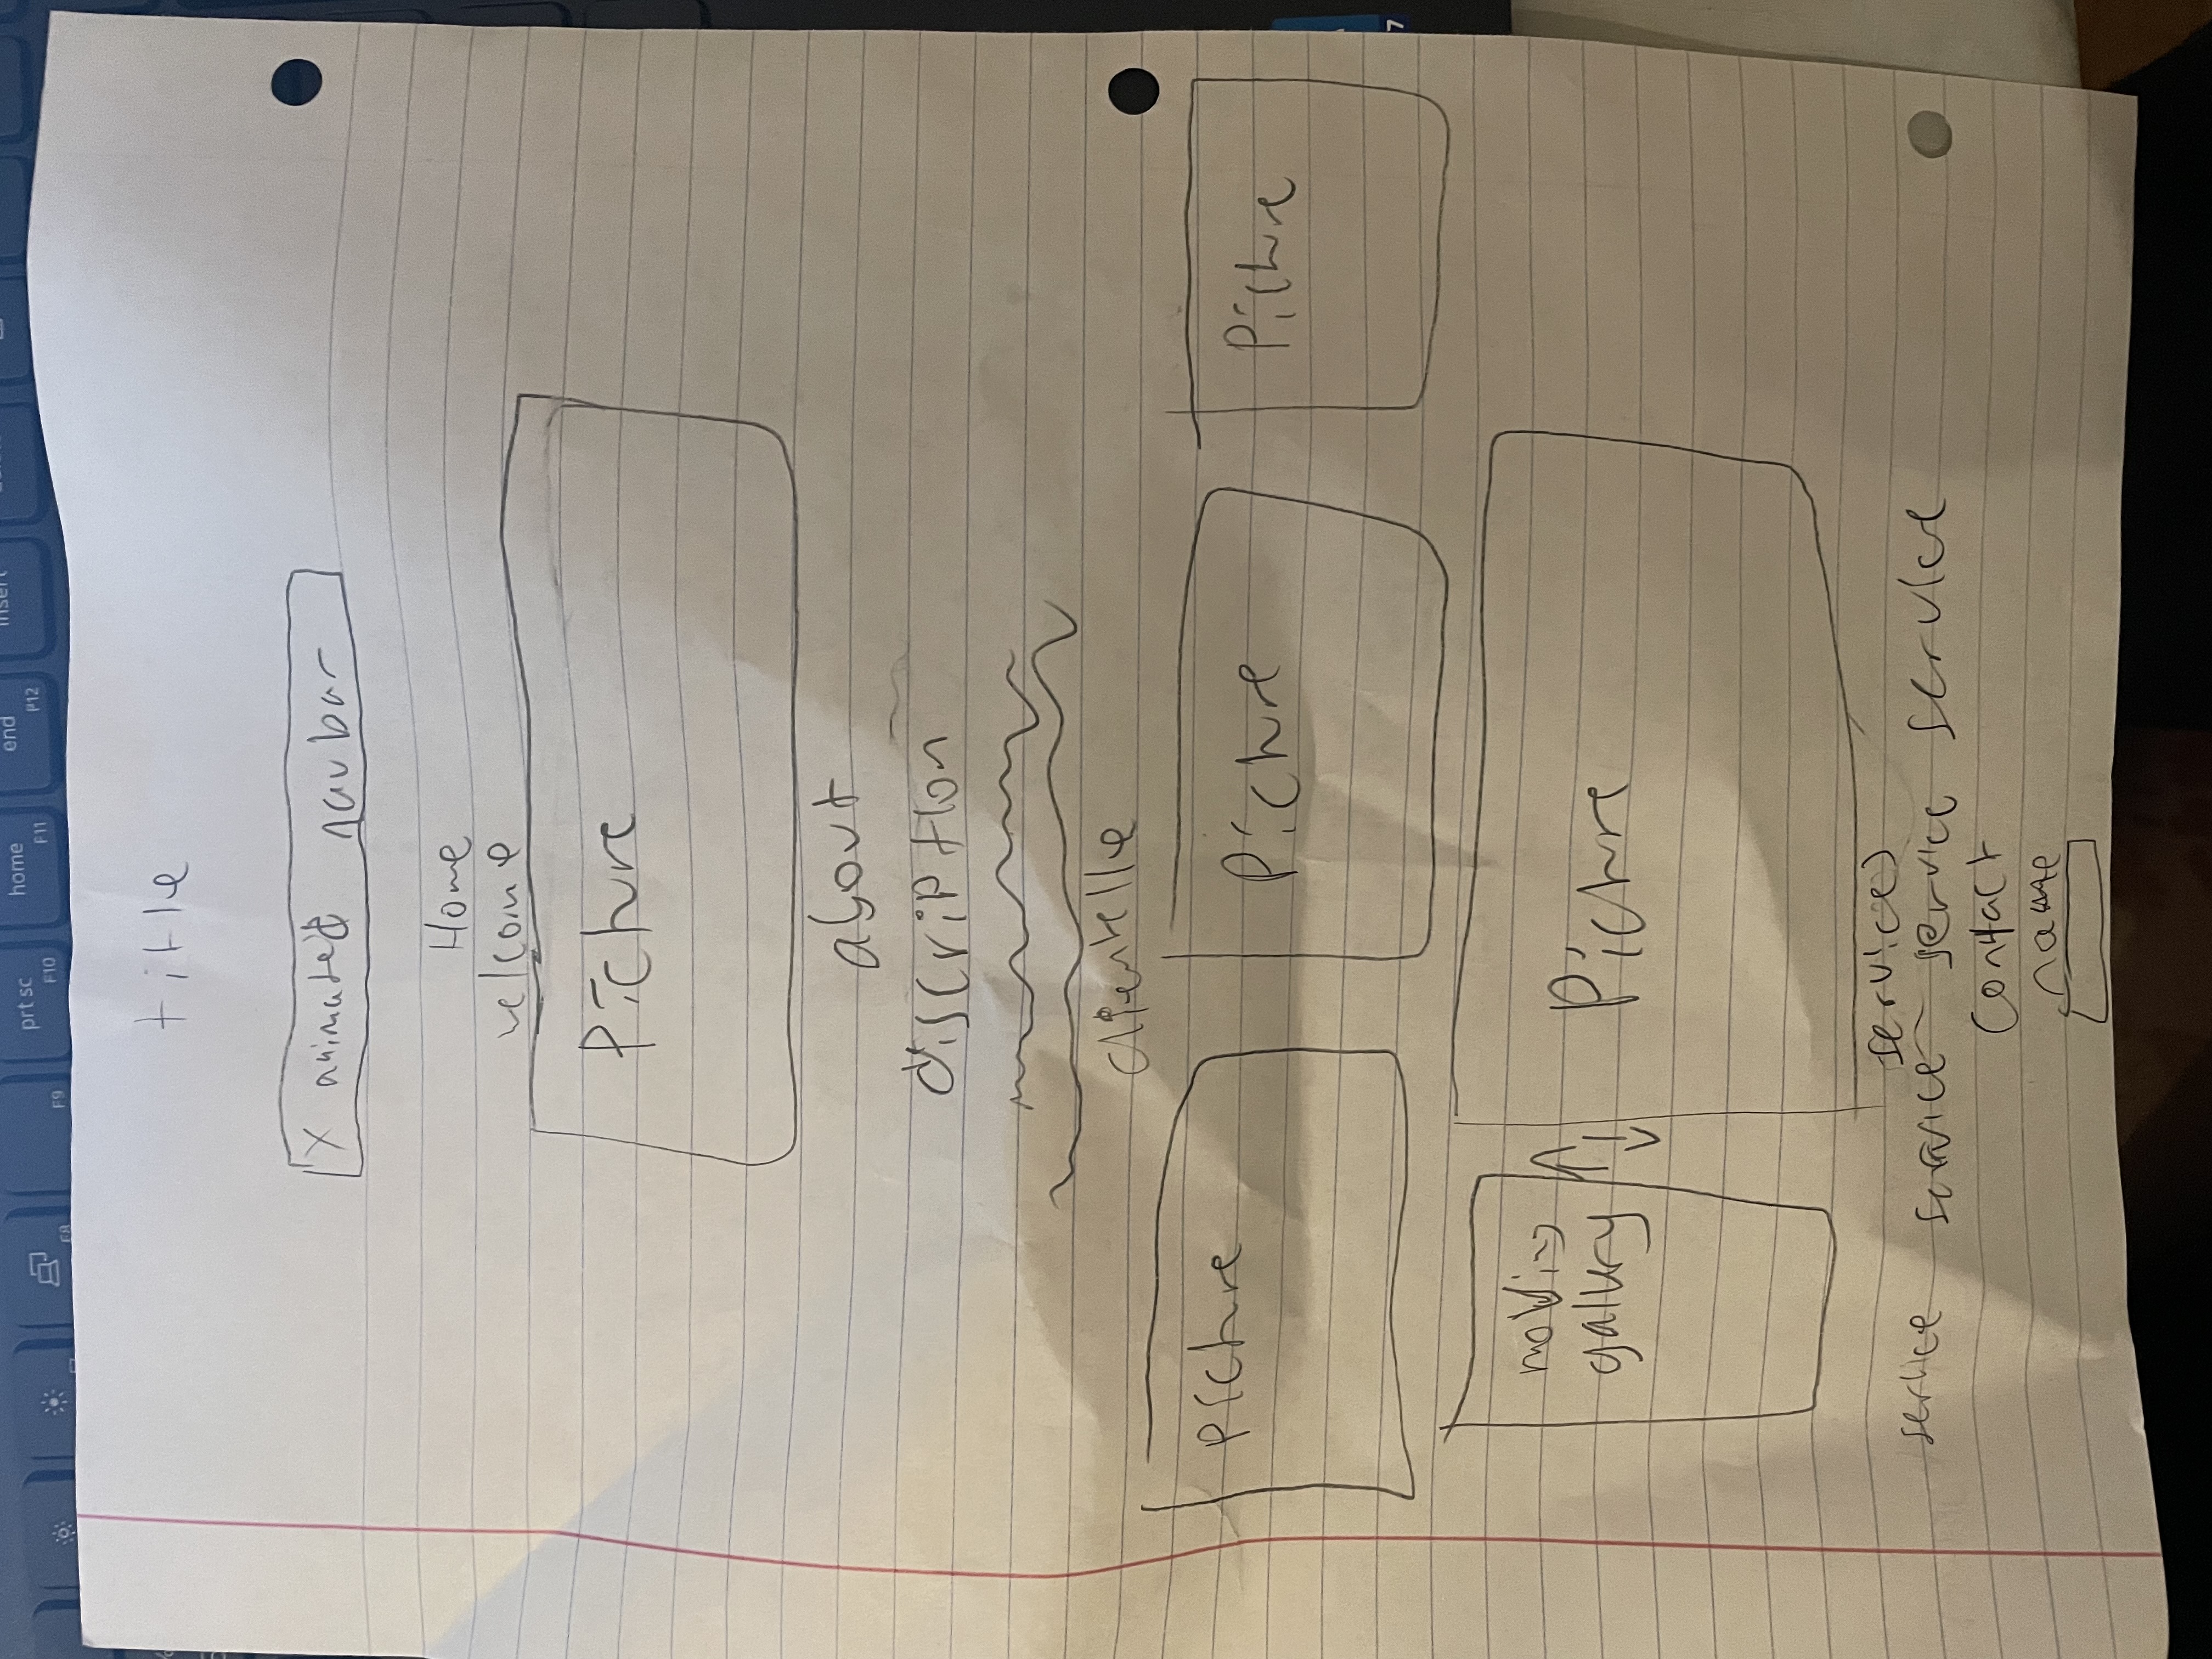 prt sc home end insert
F8 F9 F10 F11 F12
title
X animated navbar
Home
welcome
Picture
about
discription
clientelle
picture Picture Picture
moving
gallery
Picture
services
service service service service
Contact
name
7